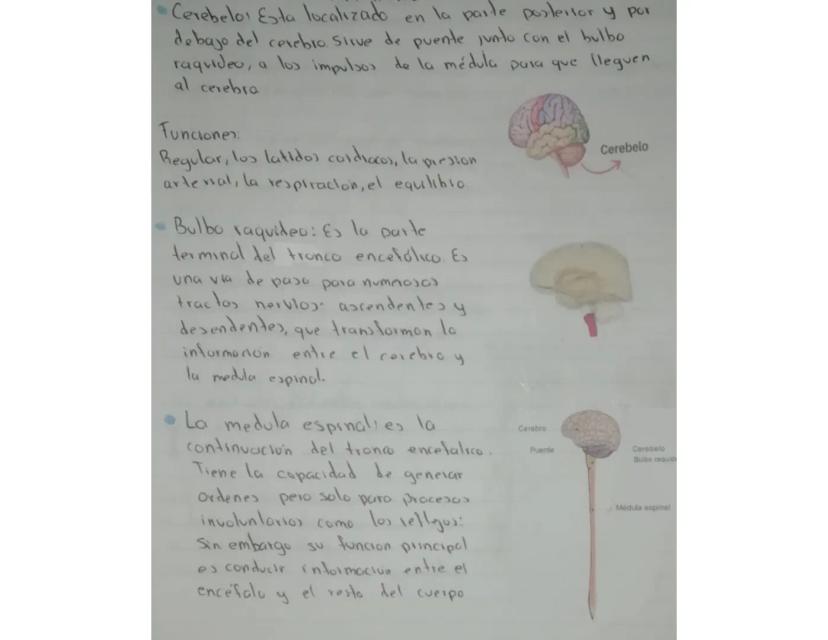 Cerebelo: Esta localizado en la parte posterior y por
debajo del cerebro. Sirve de puente junto con el bulbo
raquideo, a los impulsos de la médula para que lleguen
al cerebro
Funciones:
Regular, los latidos cardiacos, la presion
arterial, la respiracion, el equlibrio
Cerebelo
Bulbo raquideo: Es la parte
terminal del tronco encefálico. Es
una via de paso para numerosos
tractos nervios ascendentes y
desendentes, que transforman la
informacion entre el cerebro y
la medula espinal.
La medula espinal: es la
continuación del tronco encefalico.
Tiene la capacidad de generar
ordenes pero solo para procesos
involuntarios como los reflejos:
Sin embargo su funcion principal
es conducir informacion entre el
encéfalo y el resto del cuerpo
Cerebro
Puente
Cerebelo
Bulbo raquid
Médula espinal